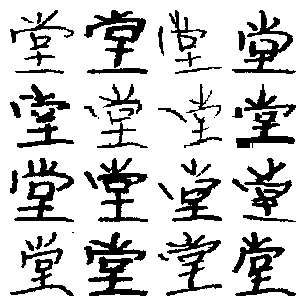 堂堂堂堂
堂堂堂堂
堂堂堂堂
堂堂堂堂